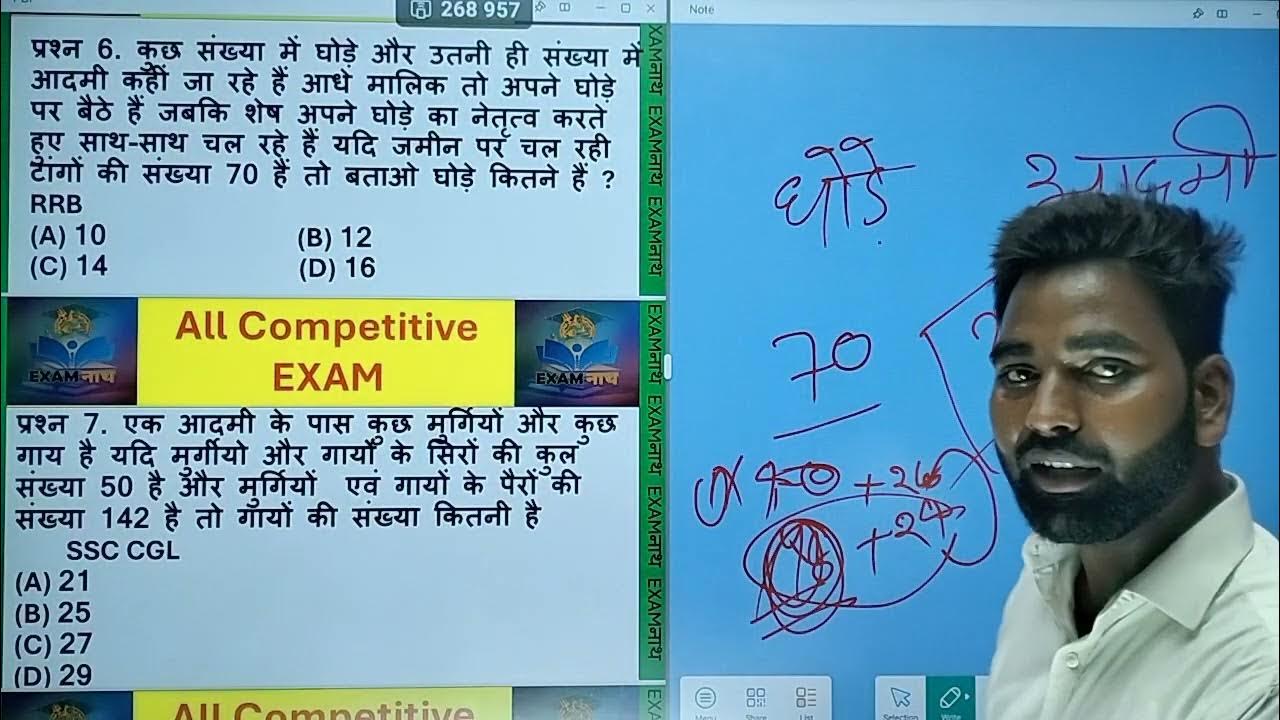 268 957
Note
प्रश्न 6. कुछ संख्या में घोड़े और उतनी ही संख्या में
आदमी कहीं जा रहे हैं आधे मालिक तो अपने घोड़े
पर बैठे हैं जबकि शेष अपने घोड़े का नेतृत्व करते
हुए साथ-साथ चल रहे हैं यदि जमीन पर चल रही
टांगों की संख्या 70 हैं तो बताओ घोड़े कितने हैं ?
RRB
(A) 10
(B) 12
(C) 14
(D) 16
All Competitive
EXAM
EXAMनाथ
EXAMनाथ
प्रश्न 7. एक आदमी के पास कुछ मुर्गियों और कुछ
गाय है यदि मुर्गीयो और गायों के सिरों की कुल
संख्या 50 है और मुर्गियों एवं गायों के पैरों की
संख्या 142 है तो गायों की संख्या कितनी है
SSC CGL
(A) 21
(B) 25
(C) 27
(D) 29
All Competitive
XAMनाथ EXAMनाथ EXAMनाथ EXAMनाथ EXAMनाथ EXAMनाथ EXAMनाथ EXA
घोड़े
आदमी
70
Menu
Share
List
Selection
Write